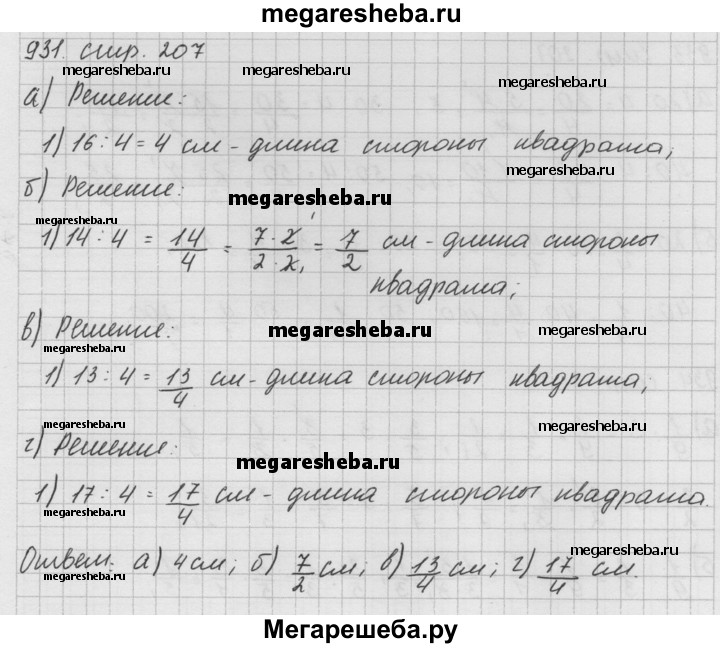 megaresheba.ru
931. стр. 207
megaresheba.ru megaresheba.ru megaresheba.ru
а) Решение:
megaresheba.ru
1) 16 : 4 = 4 см - длина стороны квадрата;
megaresheba.ru
б) Решение:
megaresheba.ru
megaresheba.ru
1) 14 : 4 = 14/4 = 7·2/2·2 = 7/2 см - длина стороны
квадрата;
в) Решение:
megaresheba.ru megaresheba.ru
megaresheba.ru
1) 13 : 4 = 13/4 см - длина стороны квадрата;
megaresheba.ru megaresheba.ru
г) Решение:
megaresheba.ru
megaresheba.ru
1) 17 : 4 = 17/4 см - длина стороны квадрата.
megaresheba.ru megaresheba.ru
Ответ: а) 4 см; б) 7/2 см; в) 13/4 см; г) 17/4 см.
megaresheba.ru
megaresheba.ru megaresheba.ru
Мегарешеба.ру